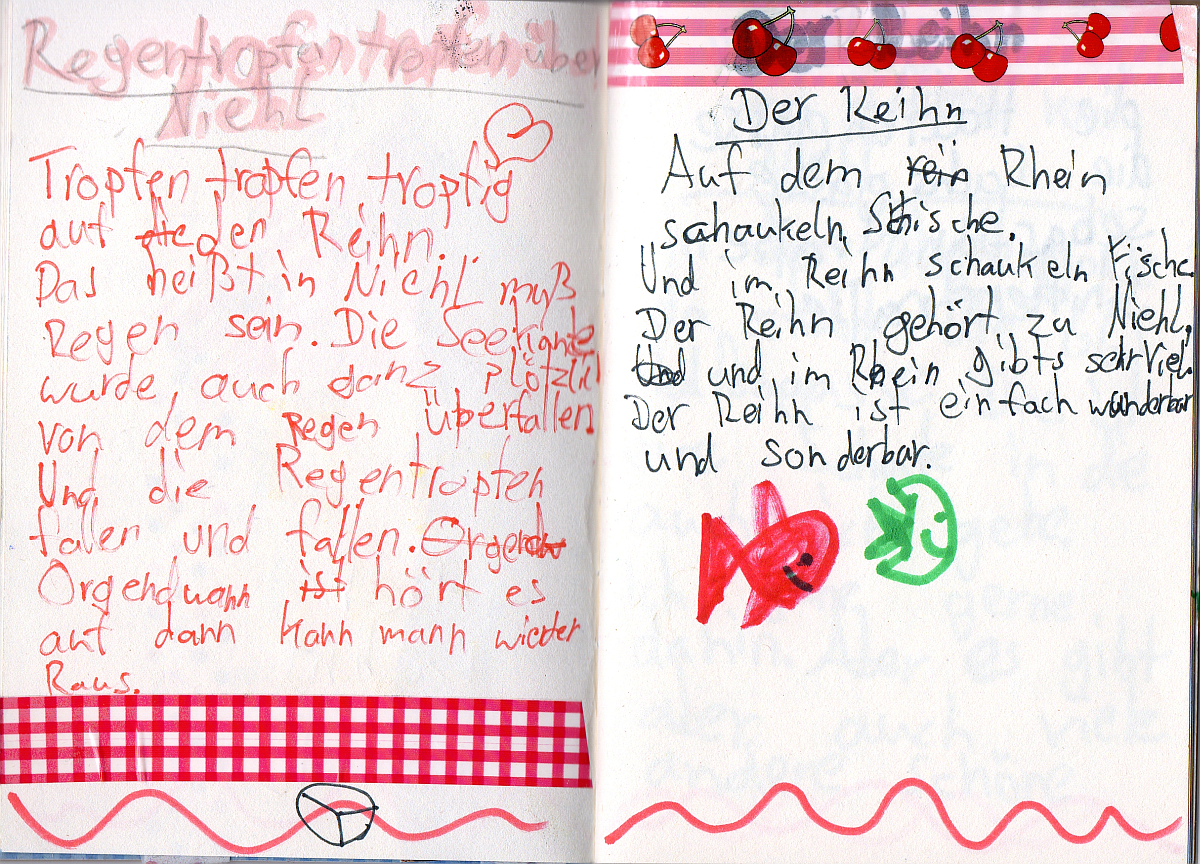 Regentropfen tropfen über
Niehl
Tropfen tropfen tropfig
auf den Reihn.
Das heißt in Niehl muß
Regen sein. Die Seekante
wurde auch ganz plötzlich
von dem Regen überfallen.
Und die Regentropfen
fallen und fallen. Orgend
Orgendwann ist hört es
auf dann kann mann wieder
Raus.
Der Reihn
Auf dem rein Rhein
schaukeln Schische.
Und im Reihn schaukeln Fische.
Der Reihn gehört zu Niehl,
Und und im Rhein gibts sehr viel.
Der Reihn ist einfach wunderbar
und sonderbar.